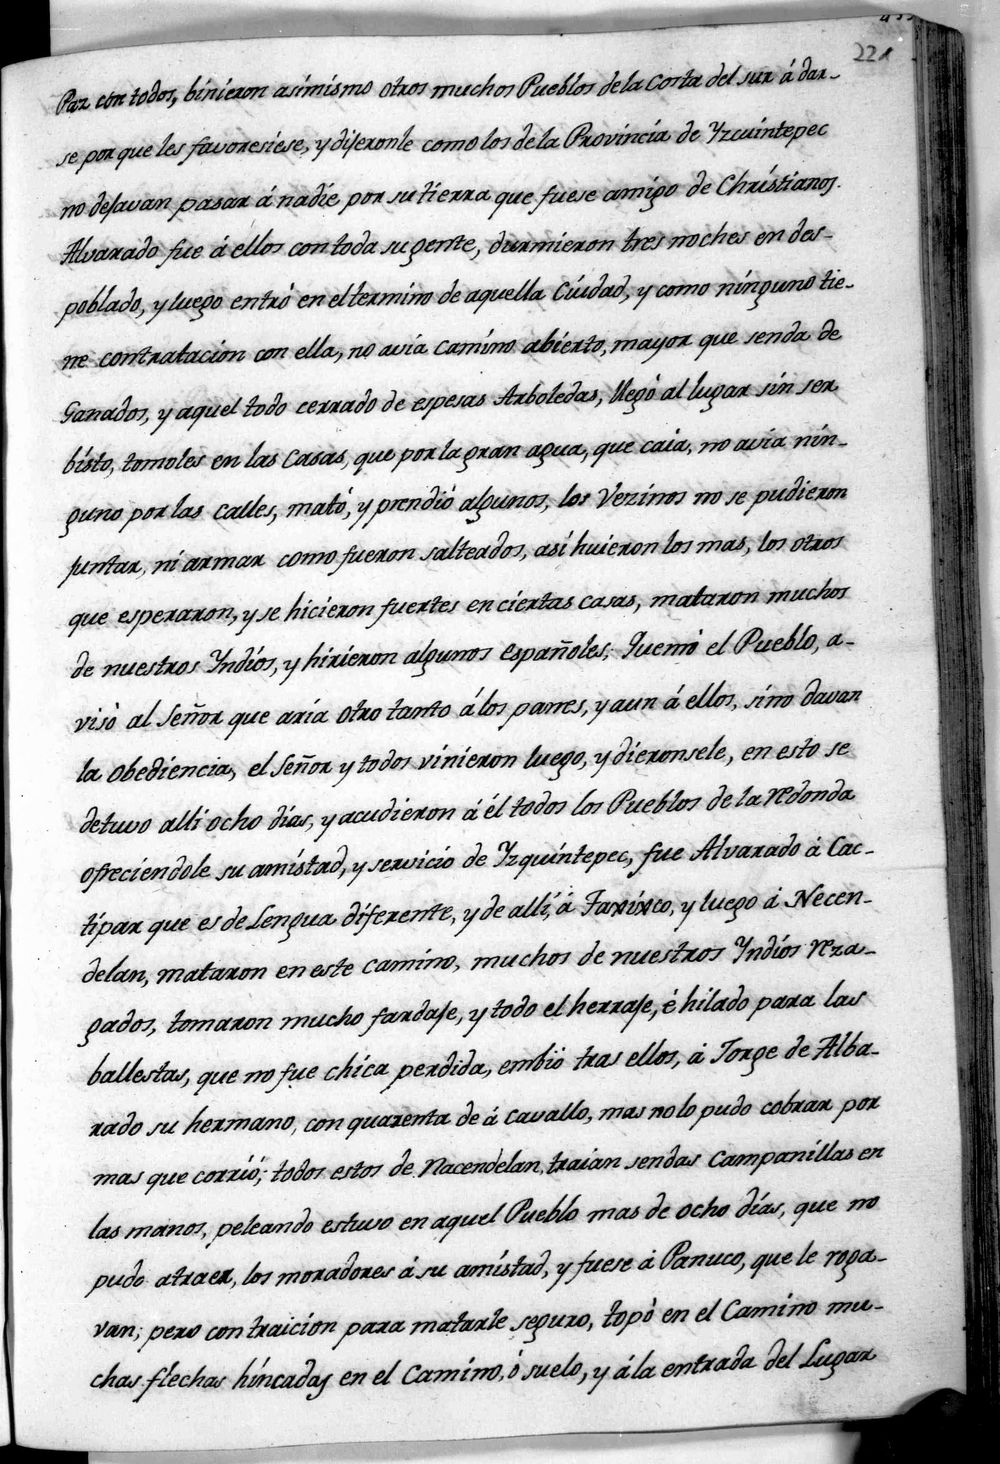 221
Paz con todos, binieron asimismo otros muchos Pueblos dela Costa del sur á dar-
se por que les favoresiese, y dijeronle como los dela Provincia de Yzcuintepec
no dejavan pasar á nadie por su tierra que fuese amigo de Christianos.
Alvarado fue á ellos con toda su gente, durmieron tres noches en des-
poblado, y luego entró en el termino de aquella Ciudad, y como ninguno tie-
ne contratacion con ella, no avia camino abierto, mayor que senda de
Ganados, y aquel todo cerrado de espesas Arboledas, llegó al lugar sin ser
bisto, tomoles en las Casas, que por la gran agua, que caia, no avia nin-
guno por las calles, mató, y prendió algunos, los Vezinos no se pudieron
juntar, ni armar como fueron salteados, asi huieron los mas, los otros
que esperaron, y se hicieron fuertes en ciertas casas, mataron muchos
de nuestros Yndios, y hirieron algunos españoles; Quemó el Pueblo, a-
visò al Señor que aria otro tanto á los panes, y aun á ellos, sino davan
la obediencia, el Señor y todos vinieron luego, y dieronsele, en esto se
detuvo alli ocho dias, y acudieron á él todos los Pueblos de la redonda
ofreciendole su amistad, y servicio de Yzquintepec, fue Alvarado á Cac-
tipar que es de Lengua diferente, y de alli, á Taxixco, y luego á Necen-
delan, mataron en este camino, muchos de nuestros Yndios reza-
gados, tomaron mucho fardaje, y todo el herraje, é hilado para las
ballestas, que no fue chica perdida, embiò tras ellos, á Jorge de Alba-
rado su hermano, con quarenta de á cavallo, mas no lo pudo cobrar por
mas que corrió; todos estos de Nacendelan, traian sendas Campanillas en
las manos, peleando estuvo en aquel Pueblo mas de ocho dias, que no
pudo atraer, los moradores á su amistad, y fuese á Panuco, que le roga-
van; pero con traicion para matarle seguro, topò en el Camino mu-
chas flechas hincadas en el Camino, ó suelo, y á la entrada del Lugar